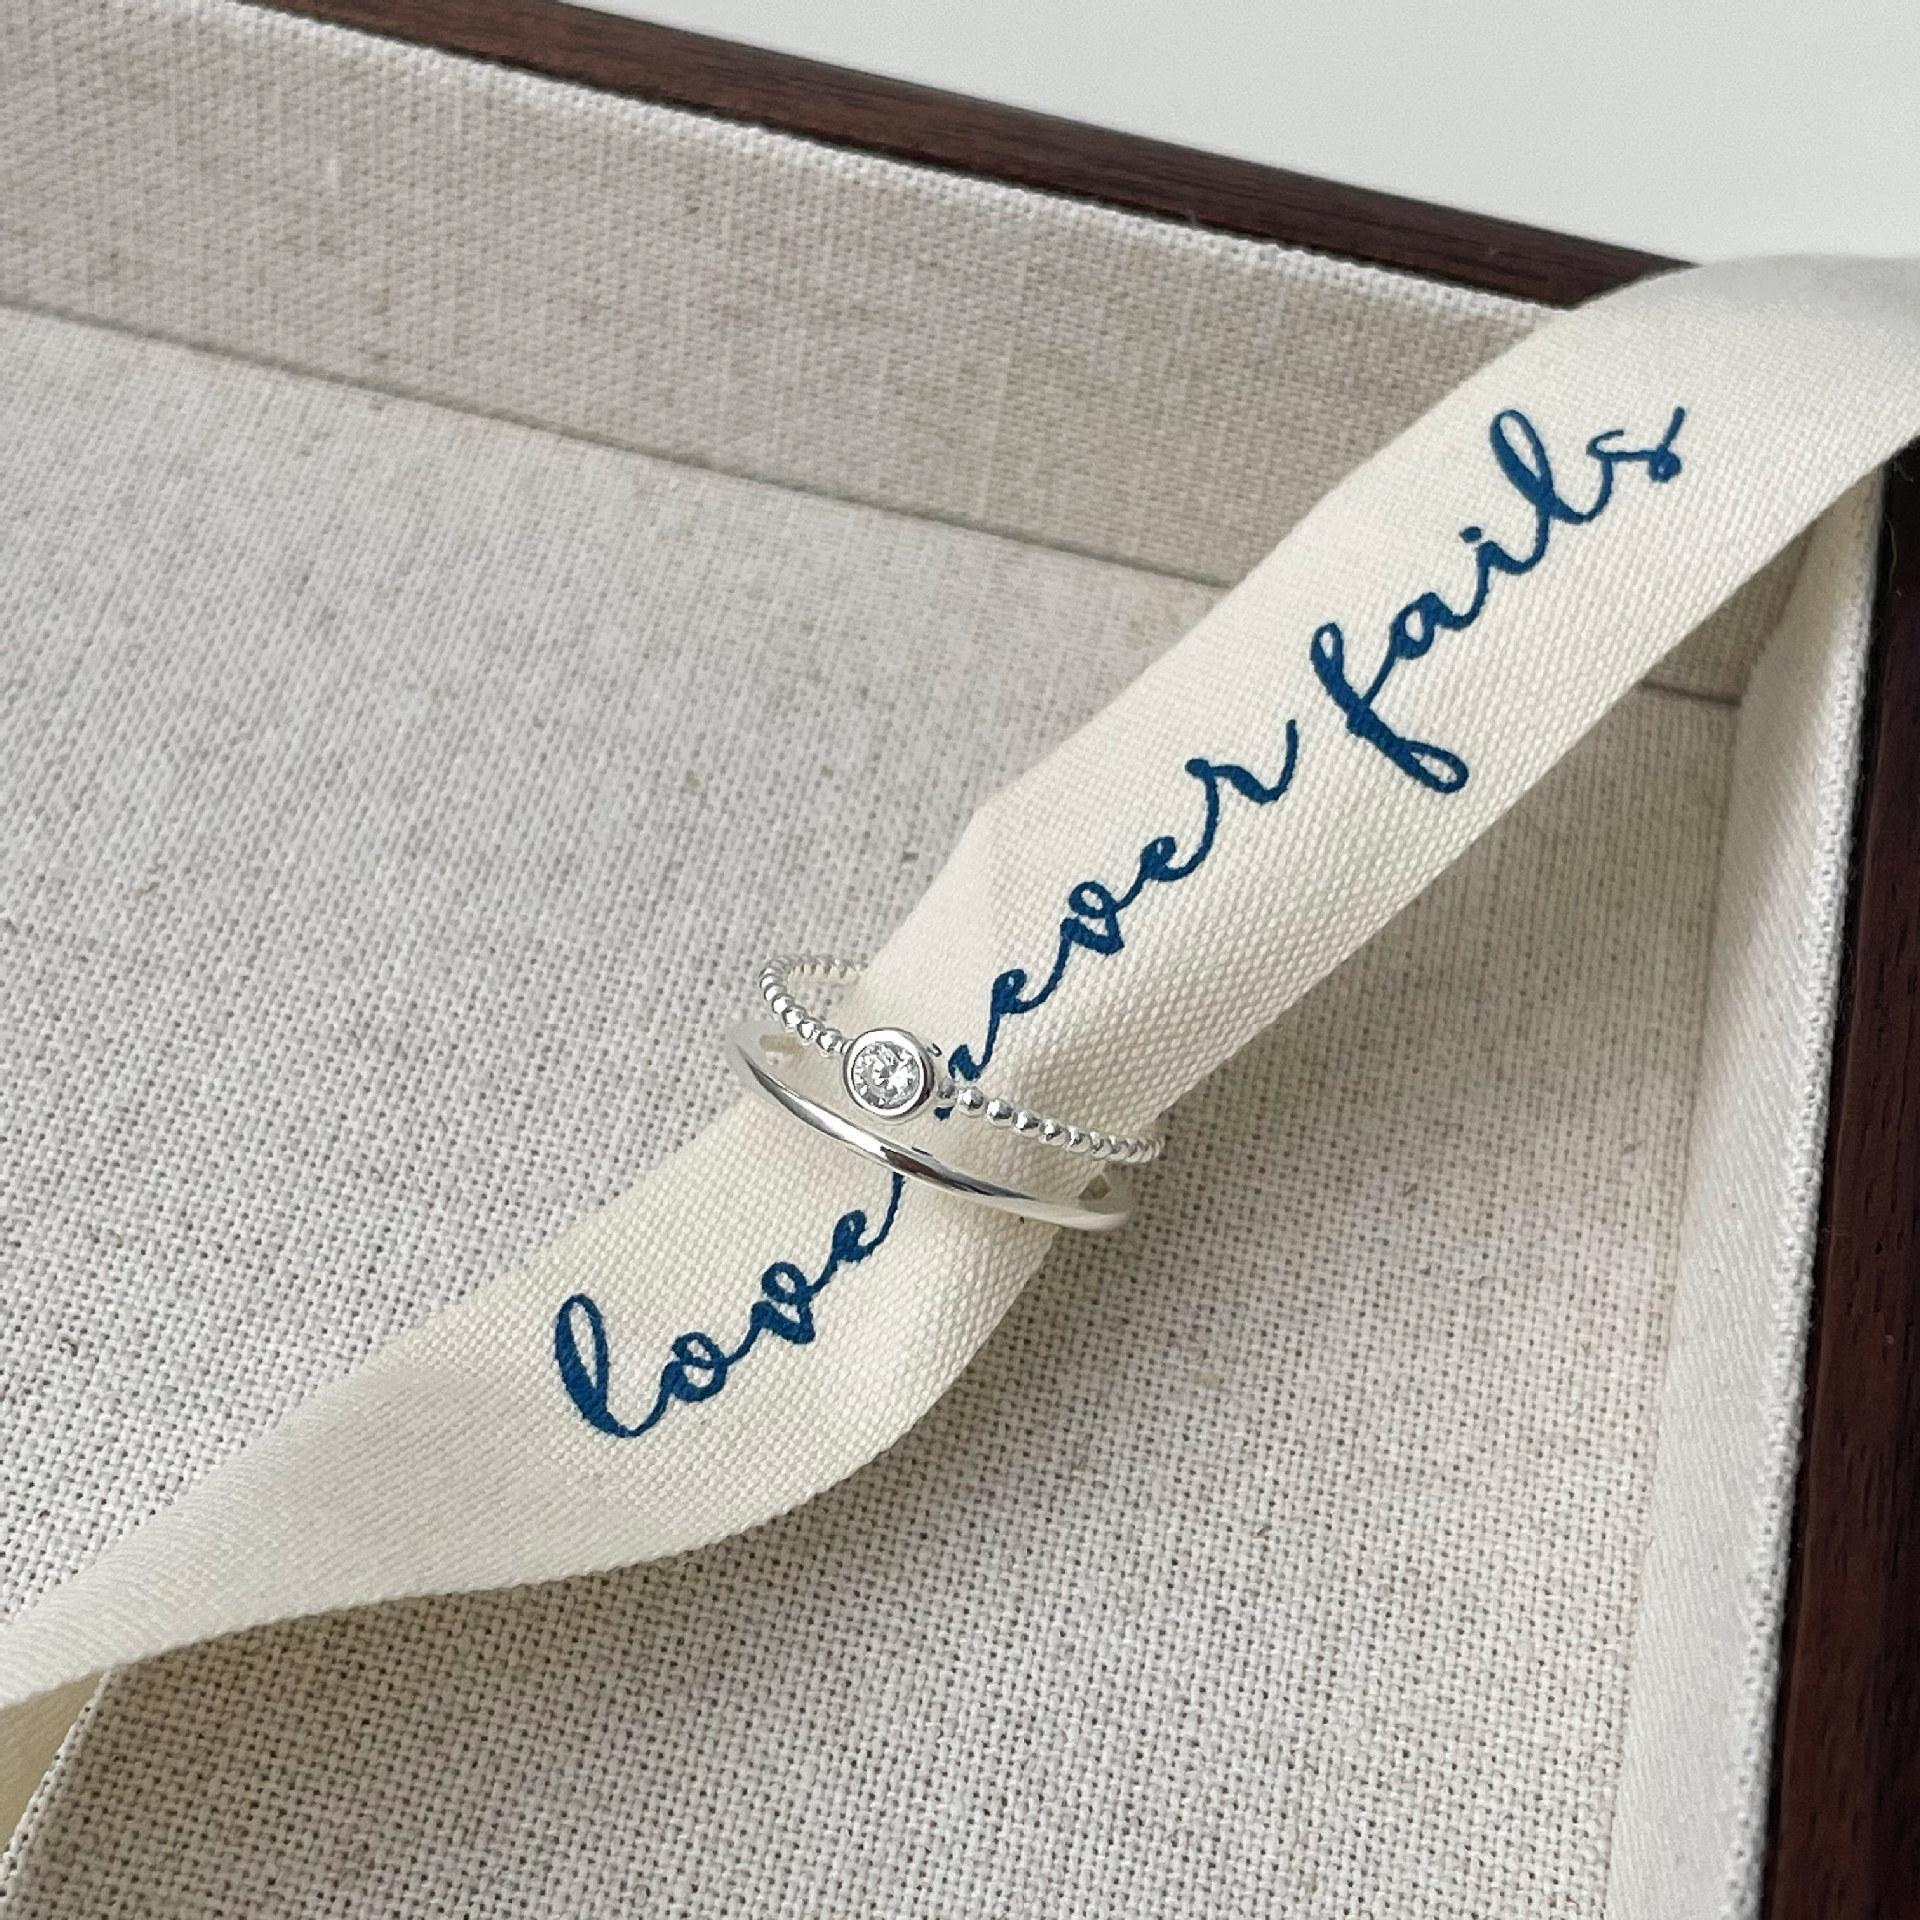 love never fails